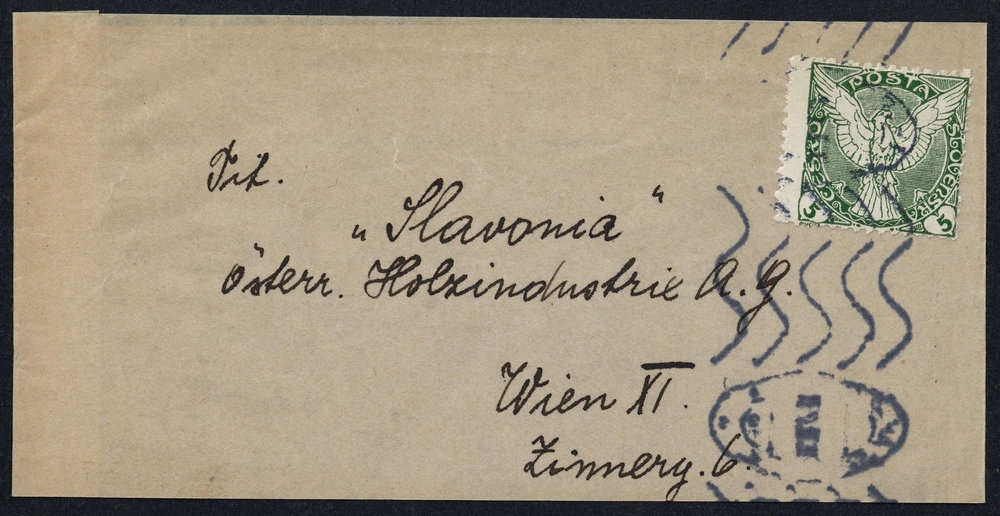 POŠTA
ČESKO
SLOVENSKÁ
5
5
Tit.
„Slavonia"
österr. Holzindustrie A. G.
Wien XI.
Zinnerg. 6.